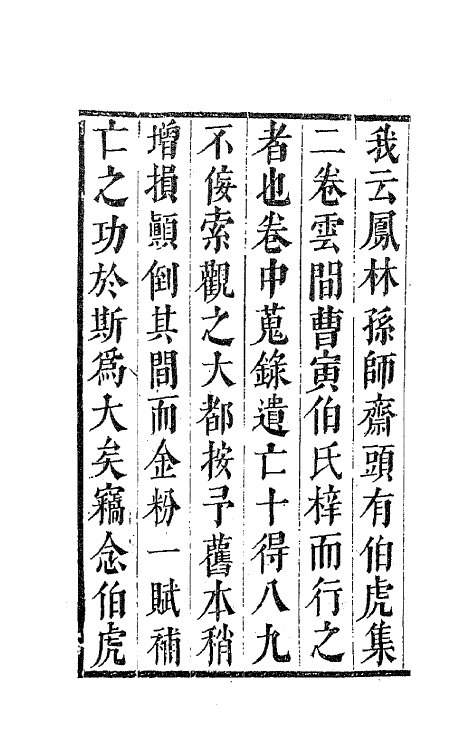 我云鳳林孫師齋頭有伯虎集
二卷雲間曹寅伯氏梓而行之
者也卷中蒐錄遺亡十得八九
不佞索觀之大都按予舊本稍
增損顛倒其間而金粉一賦補
亡之功於斯為大矣竊念伯虎